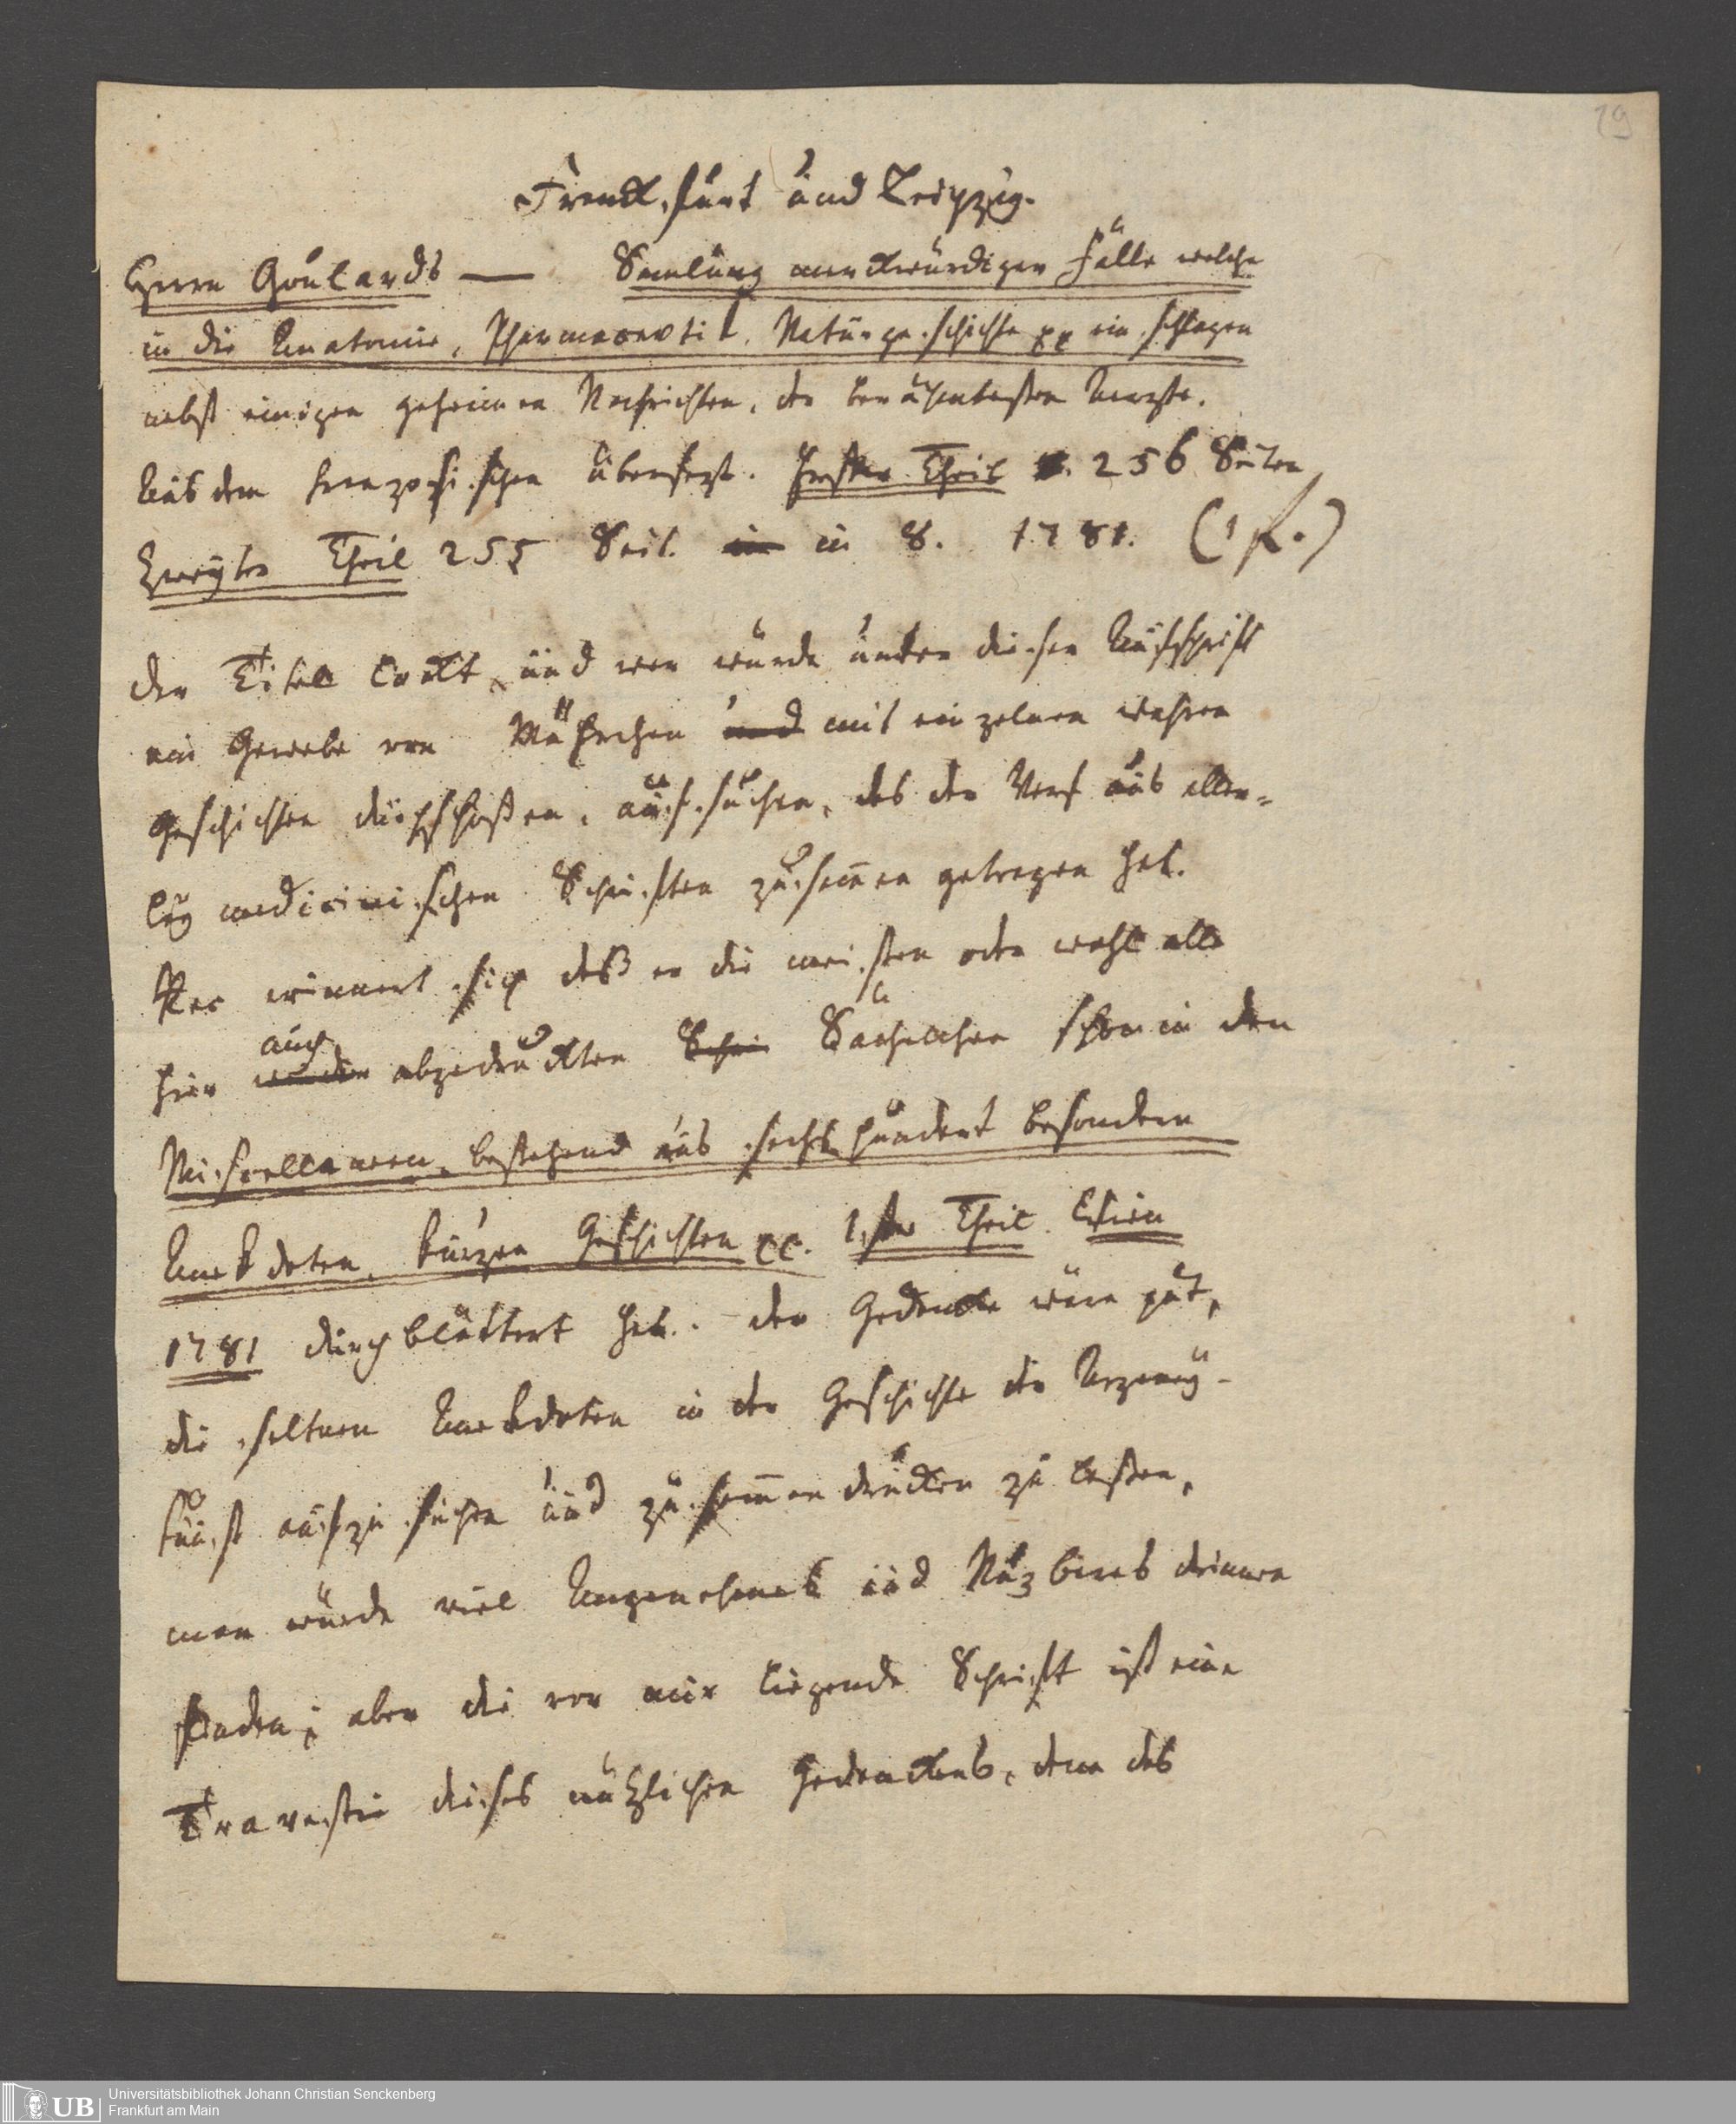 19
Franckfurt und Leipzig.
Herrn Goulards — Samlung merckwürdiger Fälle welche
in die Anatomie, Pharmacevtik, Naturgeschichte pp einschlagen
nebst einigen geheimen Nachrichten, der berühmtesten Aerzte.
Aus dem französischen übersezt. Erster Theil 256 Seiten
Zweyter Theil 255 Seit. in in 8. 1781. (1 fl.)
Der Titel lockt, und wer würde unter dieser Aufschrift
ein Gewebe von Mährchen und mit einzelnen wahren
Geschichten durchschoßen, aufsuchen, das der Verf aus aller-
ley medicinischen Schriften zusam̅en getragen hat.
Rec erinnert sich daß er die meisten oder wohl alle
auch
hier abgedruckten Sächelchen schon in den
Miscellaneen, bestehend aus sechshundert besondern
Anekdoten, kurzen Geschichten pp. 1ster Theil Wien
1781 durchblättert hat. Der Gedancke wäre gut,
die seltnen Anekdoten in der Geschichte der Arzney-
kunst aufzusuchen und zusam̅en drucken zu laßen,
man würde viel Angenehmes und Nuzbares drinnen
finden; aber die vor mir liegende Schrift ist eine
Travestie dieses nützlichen Gedanckens, denn das
UB
Universitätsbibliothek Johann Christian Senckenberg
Frankfurt am Main